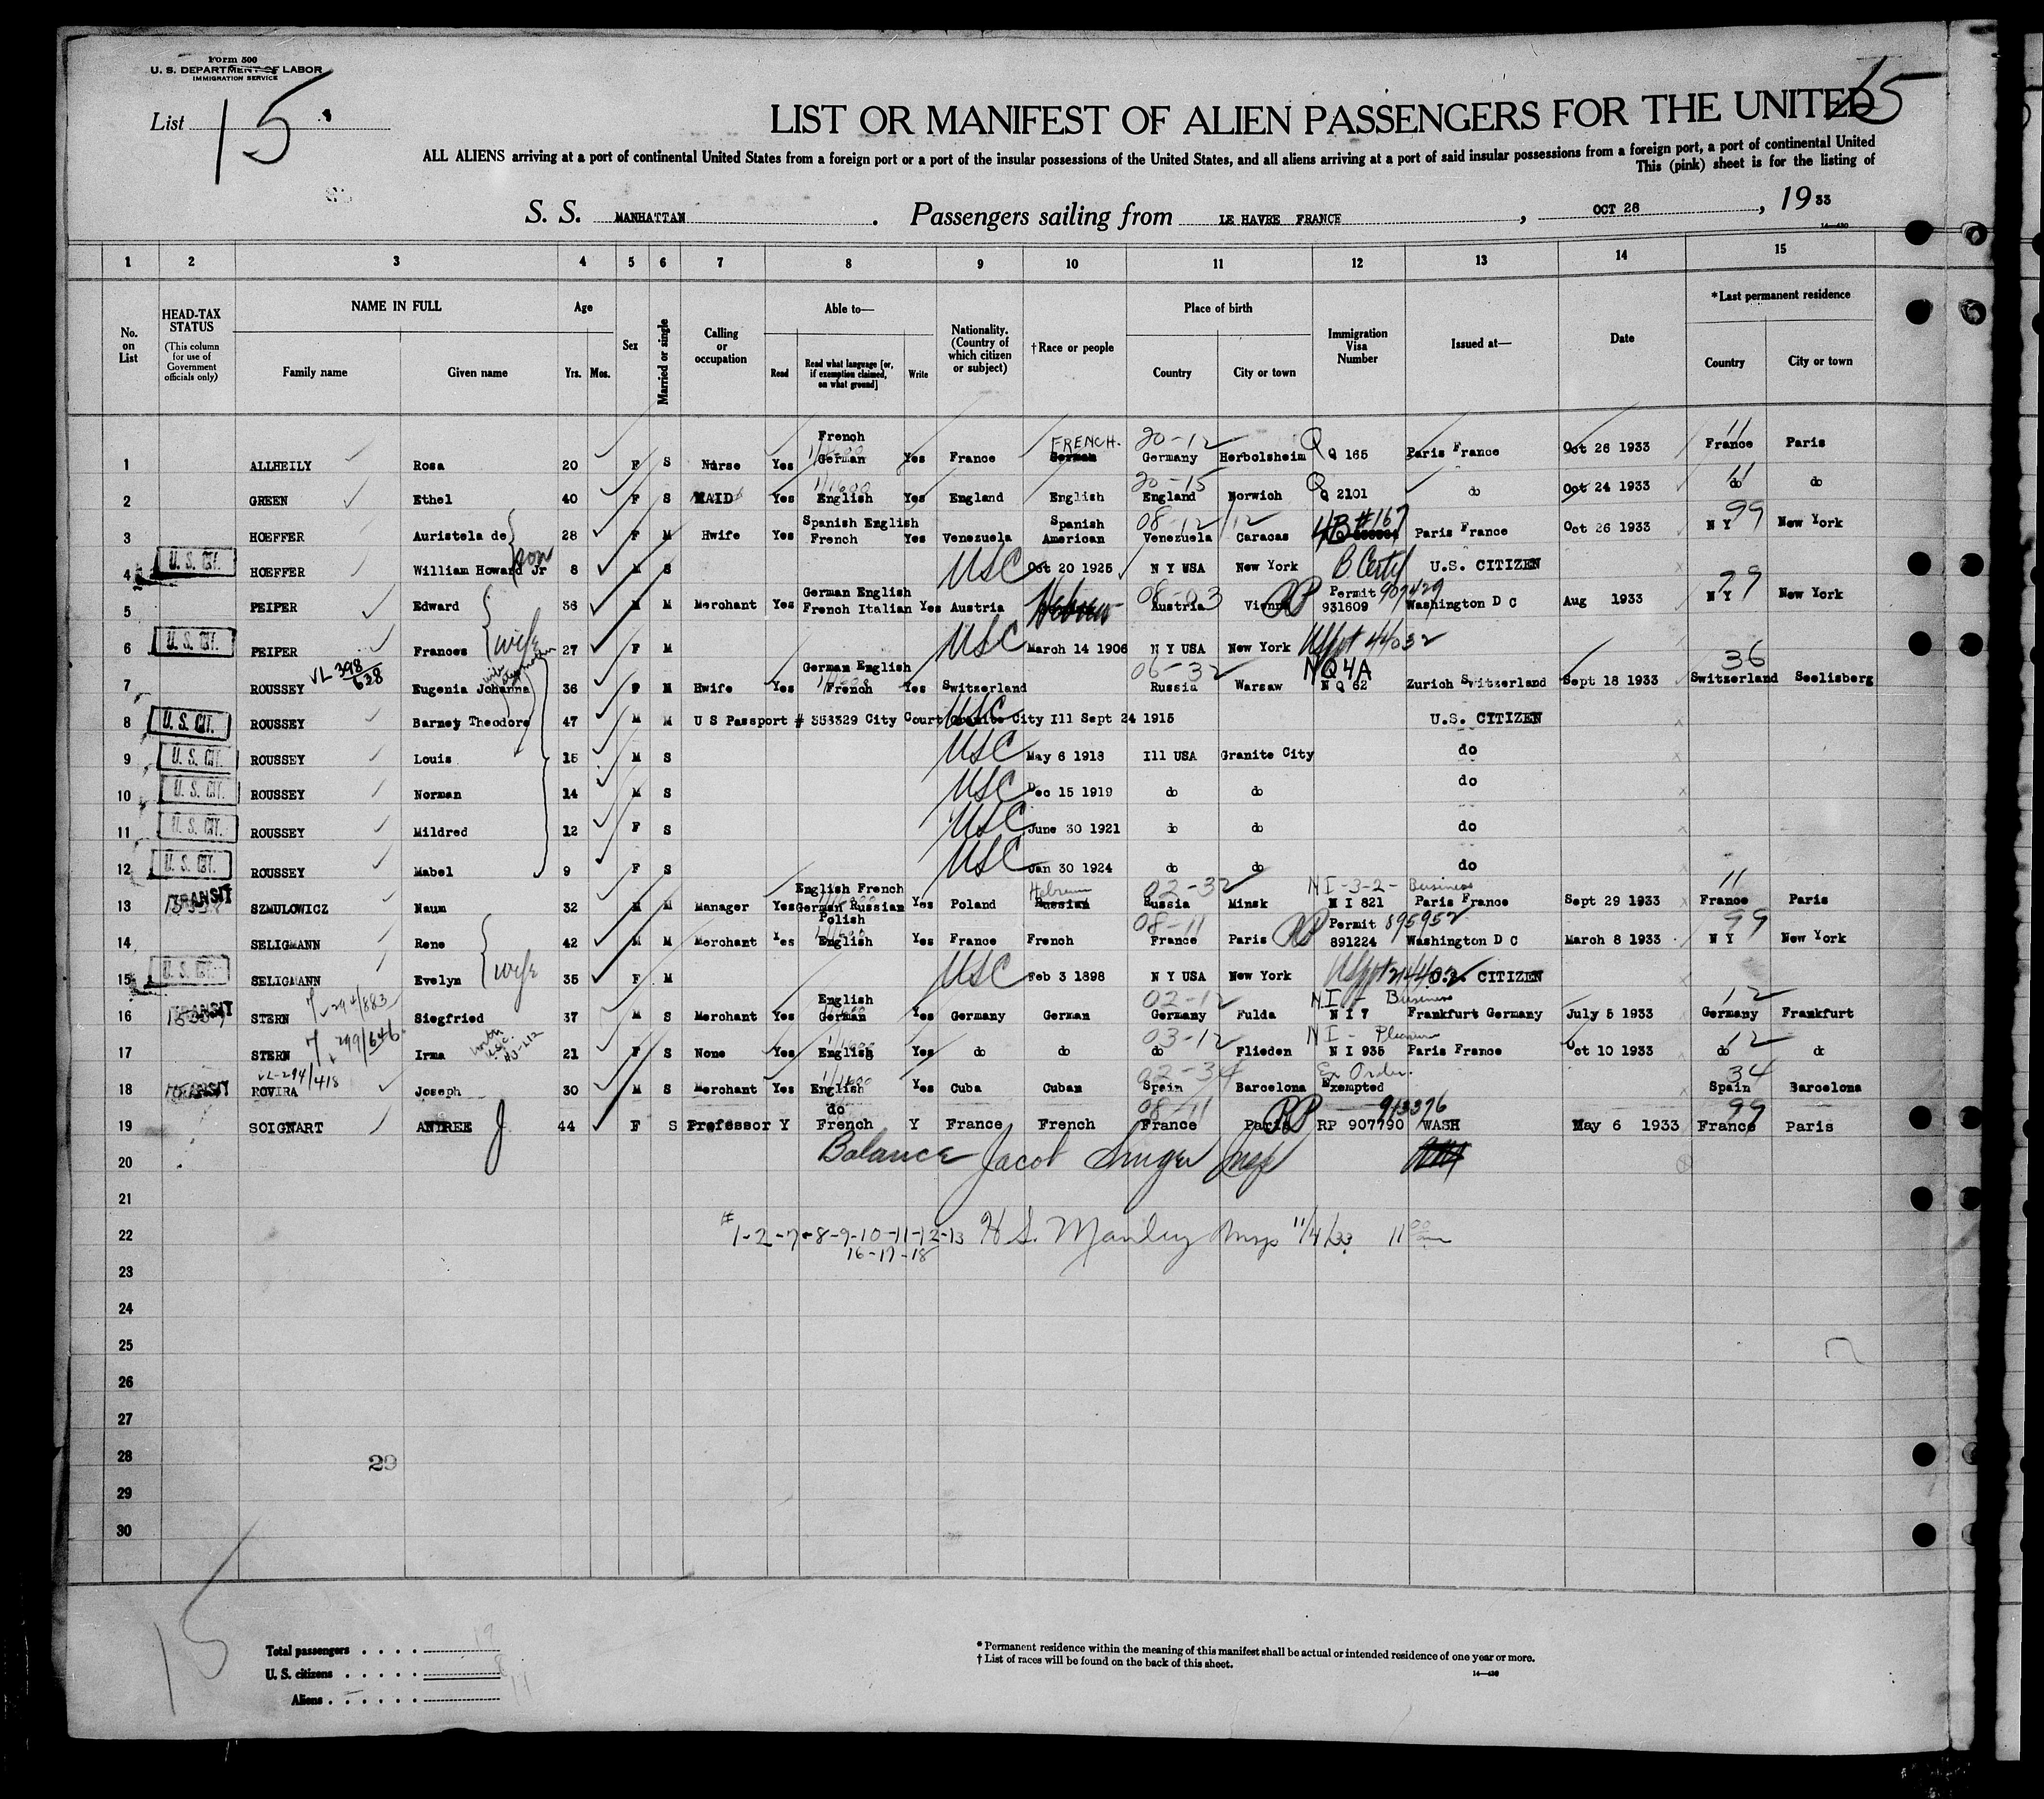 Form 500
U. S. DEPARTMENT OF LABOR
IMMIGRATION SERVICE
List 15
15
LIST OR MANIFEST OF ALIEN PASSENGERS FOR THE UNITED
ALL ALIENS arriving at a port of continental United States from a foreign port or a port of the insular possessions of the United States, and all aliens arriving at a port of said insular possessions from a foreign port, a port of continental United
This (pink) sheet is for the listing of
S. S. MANHATTAN. Passengers sailing from LE HAVRE FRANCE, OCT 28, 1933
1 2 3 4 5 6 7 8 9 10 11 12 13 14 15
No. on List
HEAD-TAX STATUS (This column for use of Government officials only)
NAME IN FULL
Family name Given name
Age
Yrs. Mos.
Sex
Married or single
Calling or occupation
Able to—
Read Read what language [or, if exemption claimed, on what ground] Write
Nationality. (Country of which citizen or subject)
†Race or people
Place of birth
Country City or town
Immigration Visa Number
Issued at—
Date
*Last permanent residence
Country City or town
1 ALLHEILY Rosa 20 F S Nurse Yes French German Yes France German FRENCH. 20-12 Germany Herbolsheim Q 165 Paris France Oct 26 1933 11 France Paris
2 GREEN Ethel 40 F S MAID Yes English Yes England English 20-15 England Norwich Q 2101 do Oct 24 1933 11 do do
3 HOEFFER Auristela de 28 F M Hwife Yes Spanish English French Yes Venezuela Spanish American 08-12 12 Venezuela Caracas 4B #167 Paris France Oct 26 1933 99 N Y New York
4 U. S. CIT. HOEFFER William Howard Jr son 8 M S USC Oct 20 1925 N Y USA New York B Certf U.S. CITIZEN
5 PEIPER Edward 36 M M Merchant Yes German English French Italian Yes Austria Hebrew 08-03 Austria Vienna RP Permit 907429 931609 Washington D C Aug 1933 99 N Y New York
6 U. S. CIT. PEIPER Frances wife 27 F M USC March 14 1906 N Y USA New York USppt 44032
7 VL 398/628 ROUSSEY Eugenia Johanna 36 F M Hwife Yes German English French Yes Switzerland 06-32 Russia Warsaw NQ4A N Q 62 Zurich Switzerland Sept 18 1933 36 Switzerland Seelisberg
8 U. S. CIT. ROUSSEY Barney Theodore 47 M M U S Passport # 353329 City Court Granite City Ill Sept 24 1915 USC U.S. CITIZEN
9 U. S. CIT. ROUSSEY Louis 15 M S USC May 6 1918 Ill USA Granite City do
10 U. S. CIT. ROUSSEY Norman 14 M S USC Dec 15 1919 do do do
11 U. S. CIT. ROUSSEY Mildred 12 F S USC June 30 1921 do do do
12 U. S. CIT. ROUSSEY Mabel 9 F S USC Jan 30 1924 do do do
13 TRANSIT SZMULOWICZ Naum 32 M M Manager Yes English French German Russian Polish Yes Poland Russian Hebrew 02-32 Russia Minsk NI-3-2- Business N I 821 Paris France Sept 29 1933 11 France Paris
14 SELIGMANN Rene 42 M M Merchant Yes English Yes France French 08-11 France Paris RP Permit 895952 891224 Washington D C March 8 1933 99 N Y New York
15 U. S. CIT. SELIGMANN Evelyn wife 35 F M USC Feb 3 1898 N Y USA New York U.S. CITIZEN
16 TRANSIT STERN Siegfried 37 M S Merchant Yes English German Yes Germany German 02-12 Germany Fulda NI- Business N I 7 Frankfurt Germany July 5 1933 12 Germany Frankfurt
17 STERN Irma 21 F S None Yes English Yes do do 03-12 do Flieden NI- Pleasure N I 935 Paris France Oct 10 1933 12 do do
18 TRANSIT VL-294/418 ROVIRA Joseph 30 M S Merchant Yes English Yes Cuba Cuban 02-34 Spain Barcelona Ex Order. Exempted 34 Spain Barcelona
19 SOIGNART ANDREE J 44 F S Professor Y do French Y France French 08-11 France Paris RP RP 907790 913376 WASH May 6 1933 99 France Paris
20 Balance Jacob
21
22 #1-2-7-8-9-10-11-12-13 H S. Manley Insp 11/4/33 11 00 am
16-17-18
23
24
25
26
27
28 29
29
30
15
Total passengers . . . . 19
U. S. citizens . . . . . 8
Aliens . . . . . . 11
* Permanent residence within the meaning of this manifest shall be actual or intended residence of one year or more.
† List of races will be found on the back of this sheet.